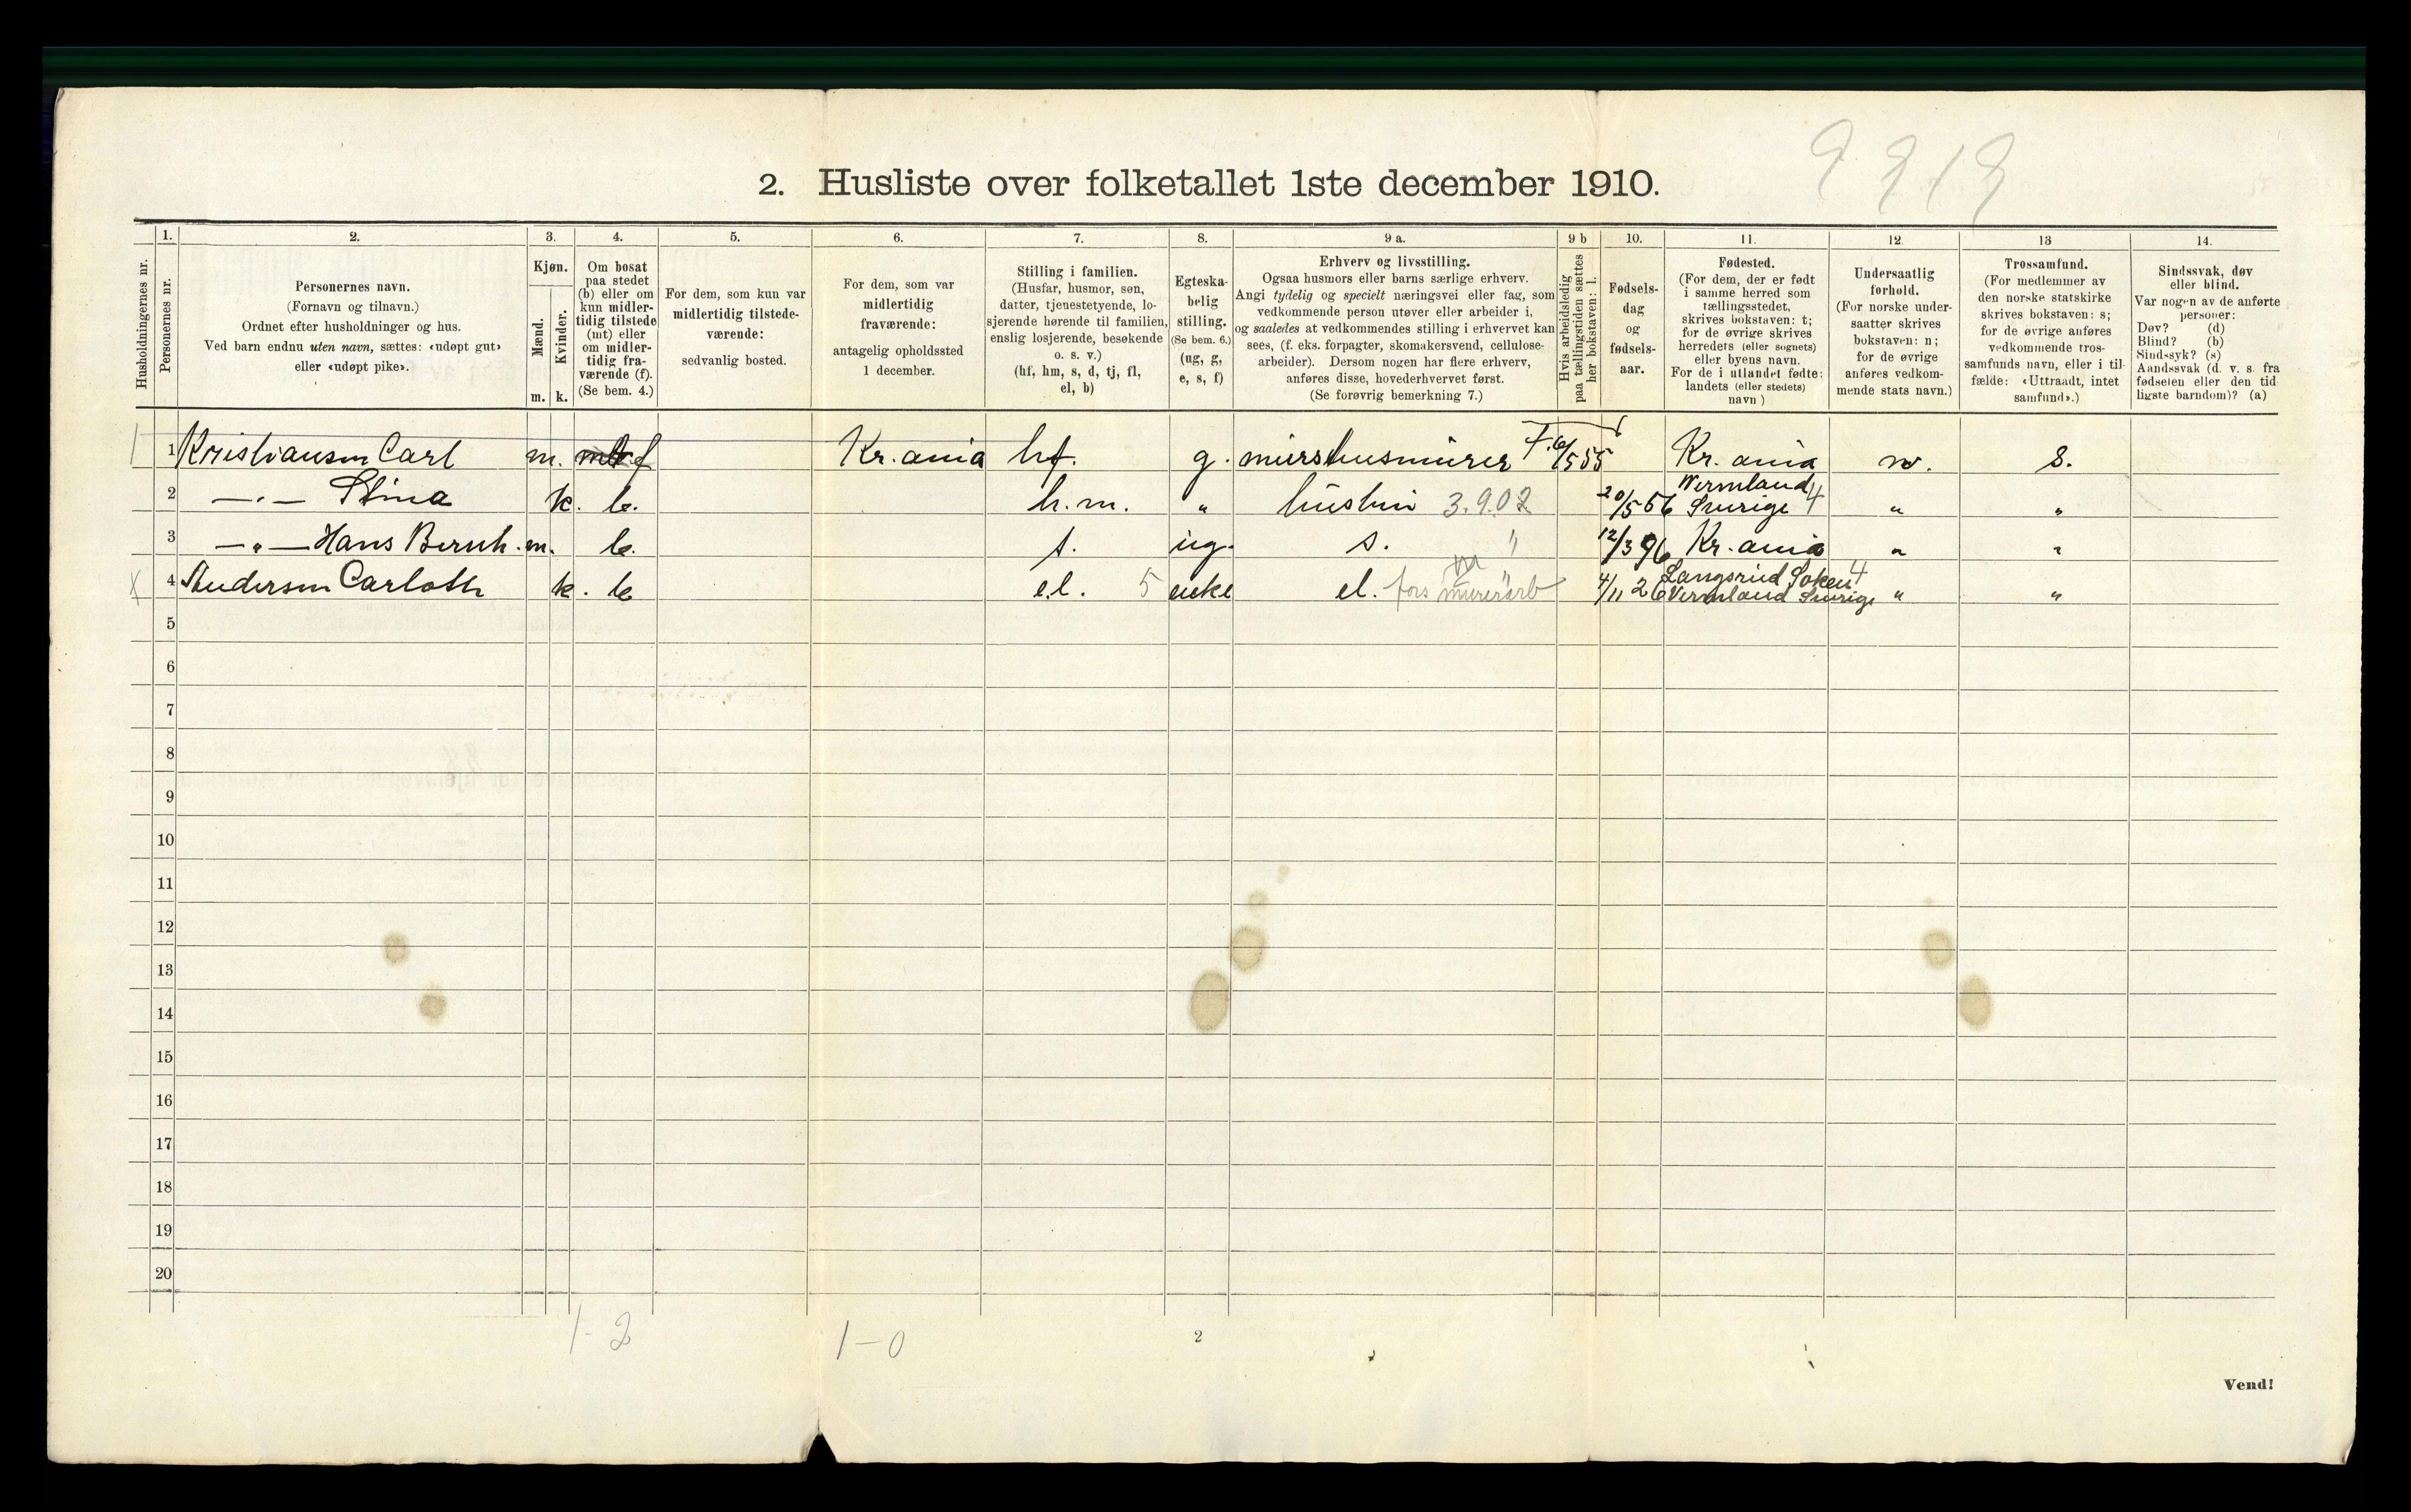 2. Husliste over folketallet 1ste december 1910.
1. 2. 3. 4. 5. 6. 7. 8. 9 a. 9 b 10. 11. 12. 13 14.
Husholdningernes nr.
Personernes nr.
Personernes navn.
(Fornavn og tilnavn.)
Ordnet efter husholdninger og hus.
Ved barn endnu uten navn, sættes: «udøpt gut»
eller «udøpt pike».
Kjøn.
Mænd.
Kvinder.
m. k.
Om bosat
paa stedet
(b) eller om
kun midler-
tidig tilstede
(mt) eller
om midler-
tidig fra-
værende (f).
(Se bem. 4.)
For dem, som kun var
midlertidig tilstede-
værende:
sedvanlig bosted.
For dem, som var
midlertidig
fraværende:
antagelig opholdssted
1 december.
Stilling i familien.
(Husfar, husmor, søn,
datter, tjenestetyende, lo-
sjerende hørende til familien,
enslig losjerende, besøkende
o. s. v.)
(hf, hm, s, d, tj, fl,
el, b)
Egteska-
belig
stilling.
(Se bem. 6.)
(ug, g,
e, s, f)
Erhverv og livsstilling.
Ogsaa husmors eller barns særlige erhverv.
Angi tydelig og specielt næringsvei eller fag, som
vedkommende person utøver eller arbeider i,
og saaledes at vedkommendes stilling i erhvervet kan
sees, (f. eks. forpagter, skomakersvend, cellulose-
arbeider). Dersom nogen har flere erhverv,
anføres disse, hovederhvervet først.
(Se forøvrig bemerkning 7.)
Hvis arbeidsledig
paa tællingstiden sættes
her bokstaven: l.
Fødsels-
dag
og
fødsels-
aar.
Fødested.
(For dem, der er født
i samme herred som
tællingsstedet,
skrives bokstaven: t;
for de øvrige skrives
herredets (eller sognets)
eller byens navn.
For de i utlandet fødte:
landets (eller stedets)
navn)
Undersaatlig
forhold.
(For norske under-
saatter skrives
bokstaven: n;
for de øvrige
anføres vedkom-
mende stats navn.)
Trossamfund.
(For medlemmer av
den norske statskirke
skrives bokstaven: s;
for de øvrige anføres
vedkommende tros-
samfunds navn, eller i til-
fælde: «Uttraadt, intet
samfund».)
Sindssvak, døv
eller blind.
Var nogen av de anførte
personer:
Døv? (d)
Blind? (b)
Sindssyk? (s)
Aandssvak (d. v. s. fra
fødselen eller den tid-
ligste barndom)? (a)
1 1 Kristiansen Carl m. f Kr. ania hf. g. 6/5 55 Kr. ania n. s.
2 —"— Stina k. b. h.m. " hustru 3.9.02 20/5 56 Wermland Sverige 4 " "
3 —"— Hans Bernh. m. b. s. ug. s. " 12/3 96 Kr. ania " "
x 4 Andersen k. b el. 5 enke el. fors murerarb 4/11 26 Soken 4 Vermland Sverige " "
5
6
7
8
9
10
11
12
13
14
15
16
17
18
19
20
1-2 1-0
2
Vend!